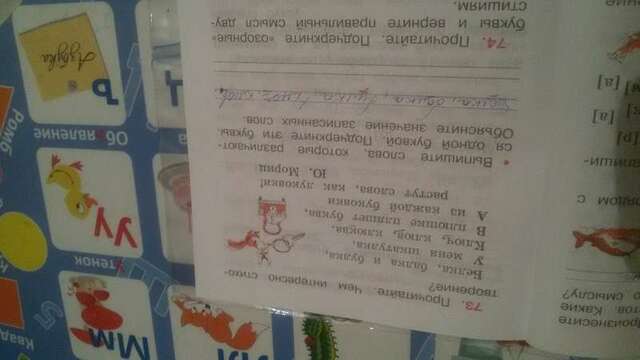 73. Прочитайте. Чем интересно стихо-
творение?
Белка, балка и булка,
У меня шкатулка,
Ключ, клюв, клюква,
В плюшке пляшет буква,
А из каждой буковки
растут слова, как луковки!
Ю. Мориц
• Выпишите слова, которые различают-
ся одной буквой. Подчеркните эти буквы.
Объясните значение записанных слов.
74. Прочитайте. Подчеркните «озорные»
буквы и верните правильный смысл дву-
стишиям.
роизнесите
тов. Какие
о смыслу?
рядом с
[а]
[а]
Мм
утенок
Уу
Объявление
Ъ
Азбука
Ромб
Квад
5